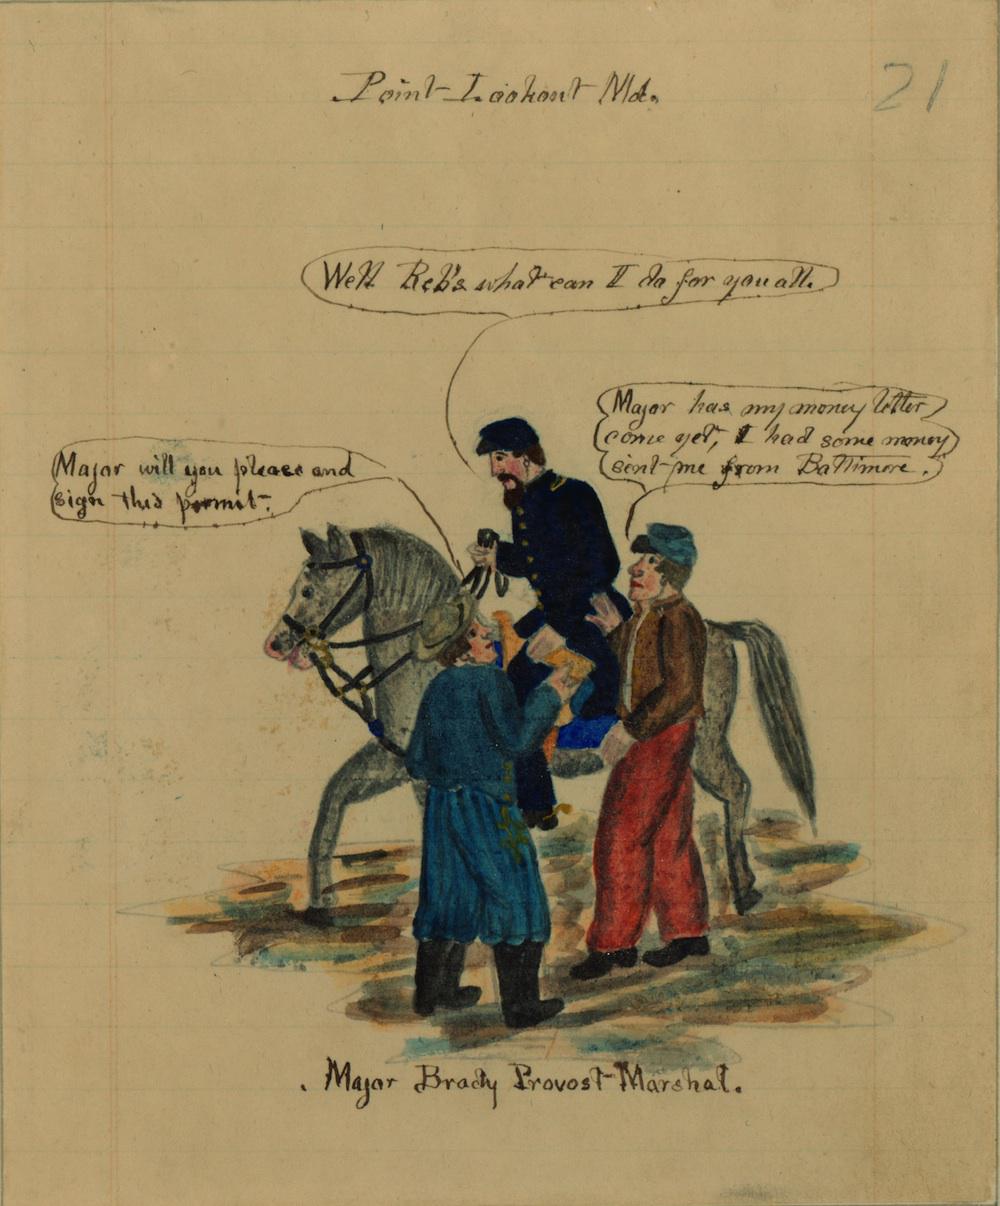 Point Lookout Md.
21
Well Reb's what can I do for you all.
Major has my money letter
come yet, I had some money
sent me from Baltimore.
Major will you please and
sign this permit.
Major Brady Provost Marshal.